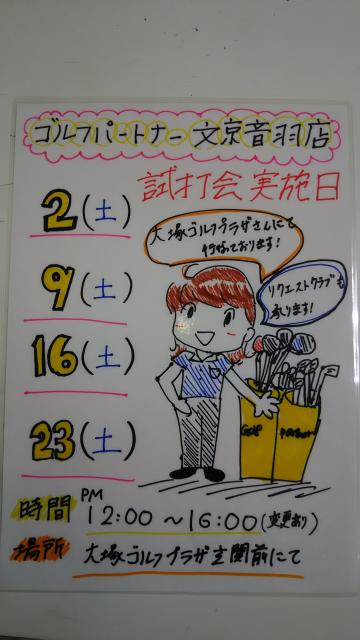 ゴルフパートナー文京音羽店
試打会実施日
2(土)
9(土)
16(土)
23(土)
大塚ゴルフプラザさんにて
行なっております!
リクエストクラブも
承ります!
Golf Partner
時間 PM 12:00 〜 16:00 (変更あり)
場所 大塚ゴルフプラザ玄関前にて